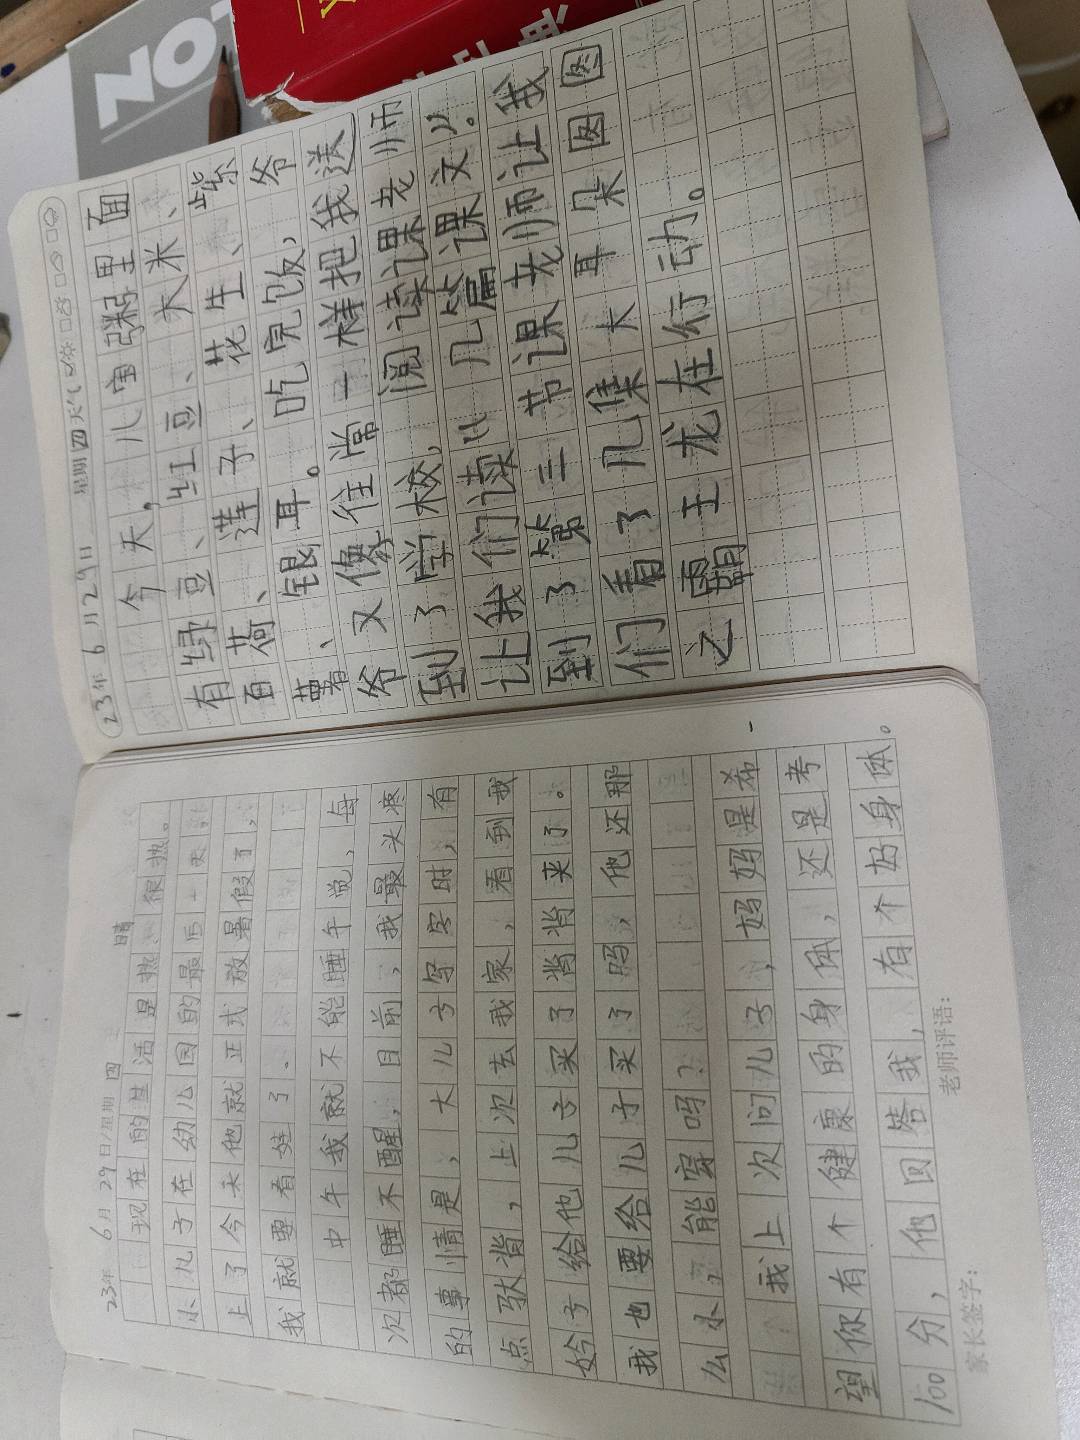 NOT
23年 6月29日 星期四 晴
现在的生活是热、很热。
小儿子在幼儿园的最后一天,
上了今天他就正式放暑假了,
我就要看娃了。
中午我就不能睡午觉、每
次都睡不醒,目前,我最头疼
的事情是,大儿子写字时,有
点驮背,上次去我家,看到我
妗子给他儿子买了背背来了。
我也要给儿子买了吗,他还那
么小,能穿吗?
我上次问儿子,妈妈是希
望你有个健康的身体,还是考
100分,他回答我,有个好身体。
家长签字: 老师评语:
23年6月29日 星期四 天气
今天,儿宝粥里面
有绿豆、红豆、大米、
百荷、莲子、花生、紫
薯、银耳。吃完饭,爷
爷又像往常一样把我送
到了学校,阅读课老师
让我们读儿几篇课文儿。
到了第三节课老师让我
们看了几集大耳朵图图
之霸王龙在行动。